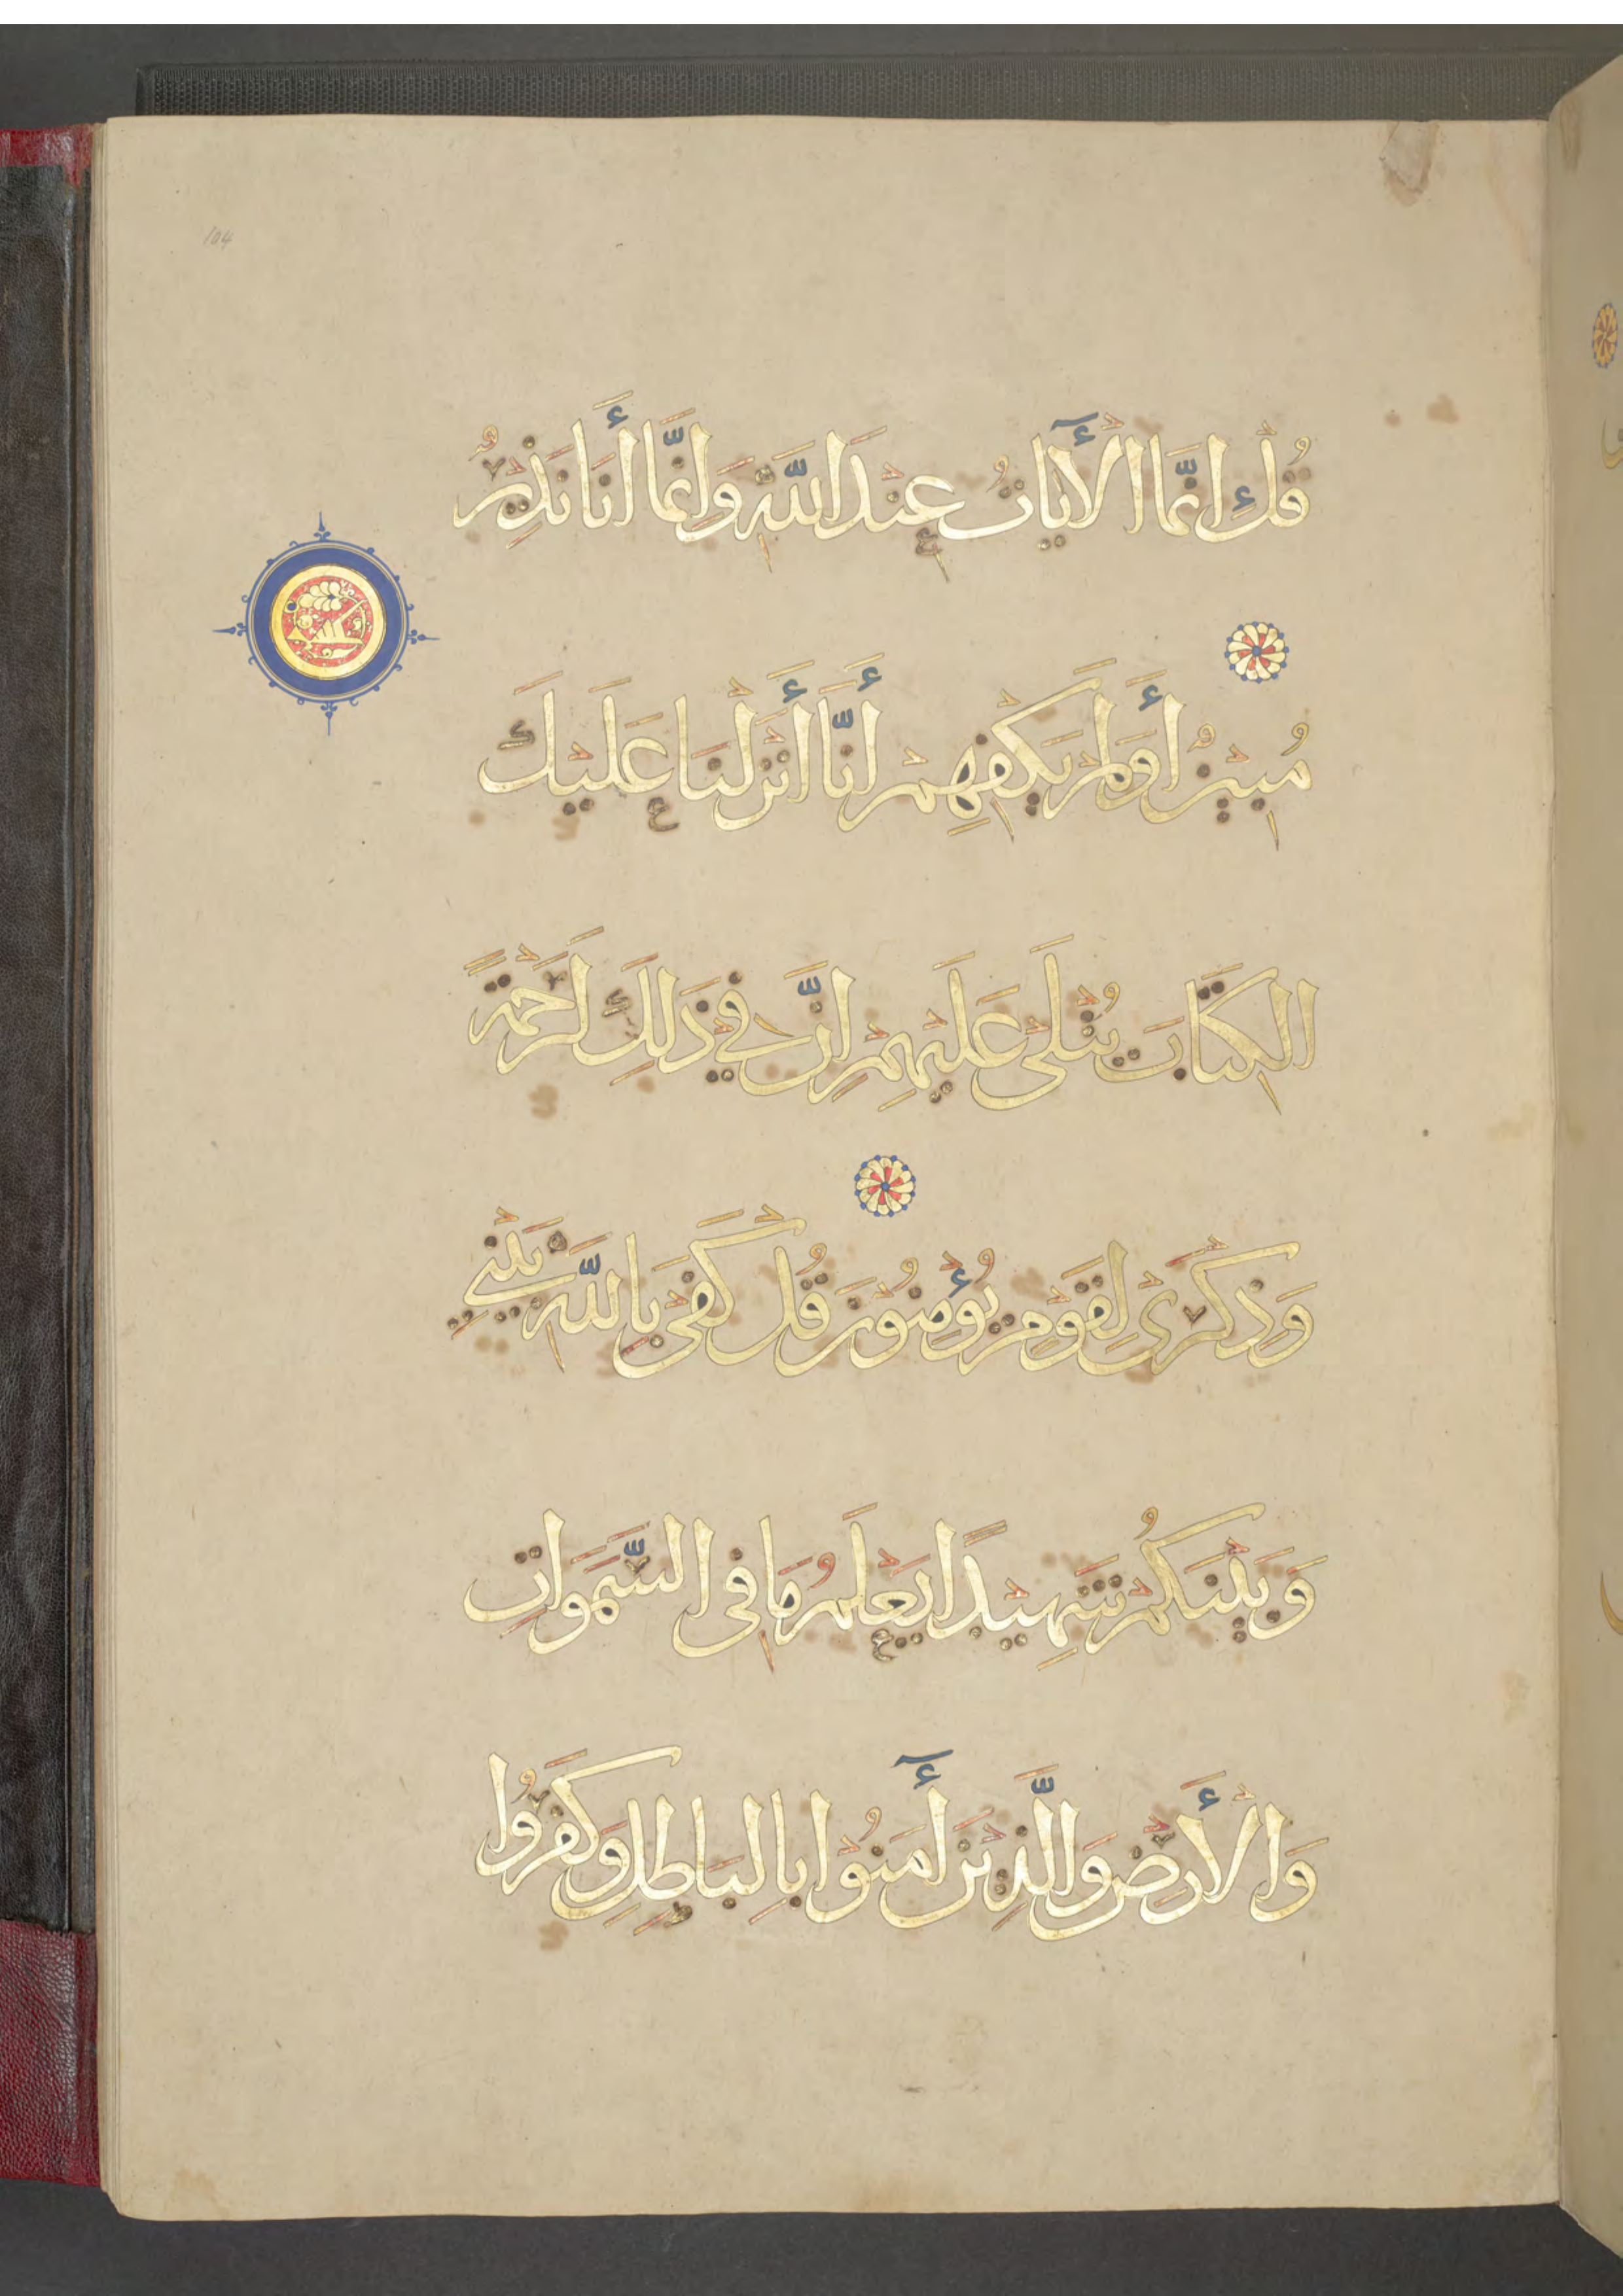 104
قُلْ إِنَّمَا الْأٓيَاتُ عِنْدَ اللَّهِ وَإِنَّمَا أَنَا نَذِيرٌ
مُبِينٌ أَوَلَمْ يَكْفِهِمْ أَنَّا أَنْزَلْنَا عَلَيْكَ
الْكِتَابَ يُتْلَى عَلَيْهِمْ إِنَّ فِي ذَلِكَ لَرَحْمَةً
وَذِكْرَىٰ لِقَوْمٍ يُؤْمِنُونَ قُلْ كَفَى بِاللَّهِ بَيْنِي
وَبَيْنَكُمْ شَهِيدًا يَعْلَمُ مَا فِي السَّمَوَاتِ
وَالْأَرْضِ وَالَّذِينَ أٓمَنُوا بِالْبَاطِلِ وَكَفَرُوا